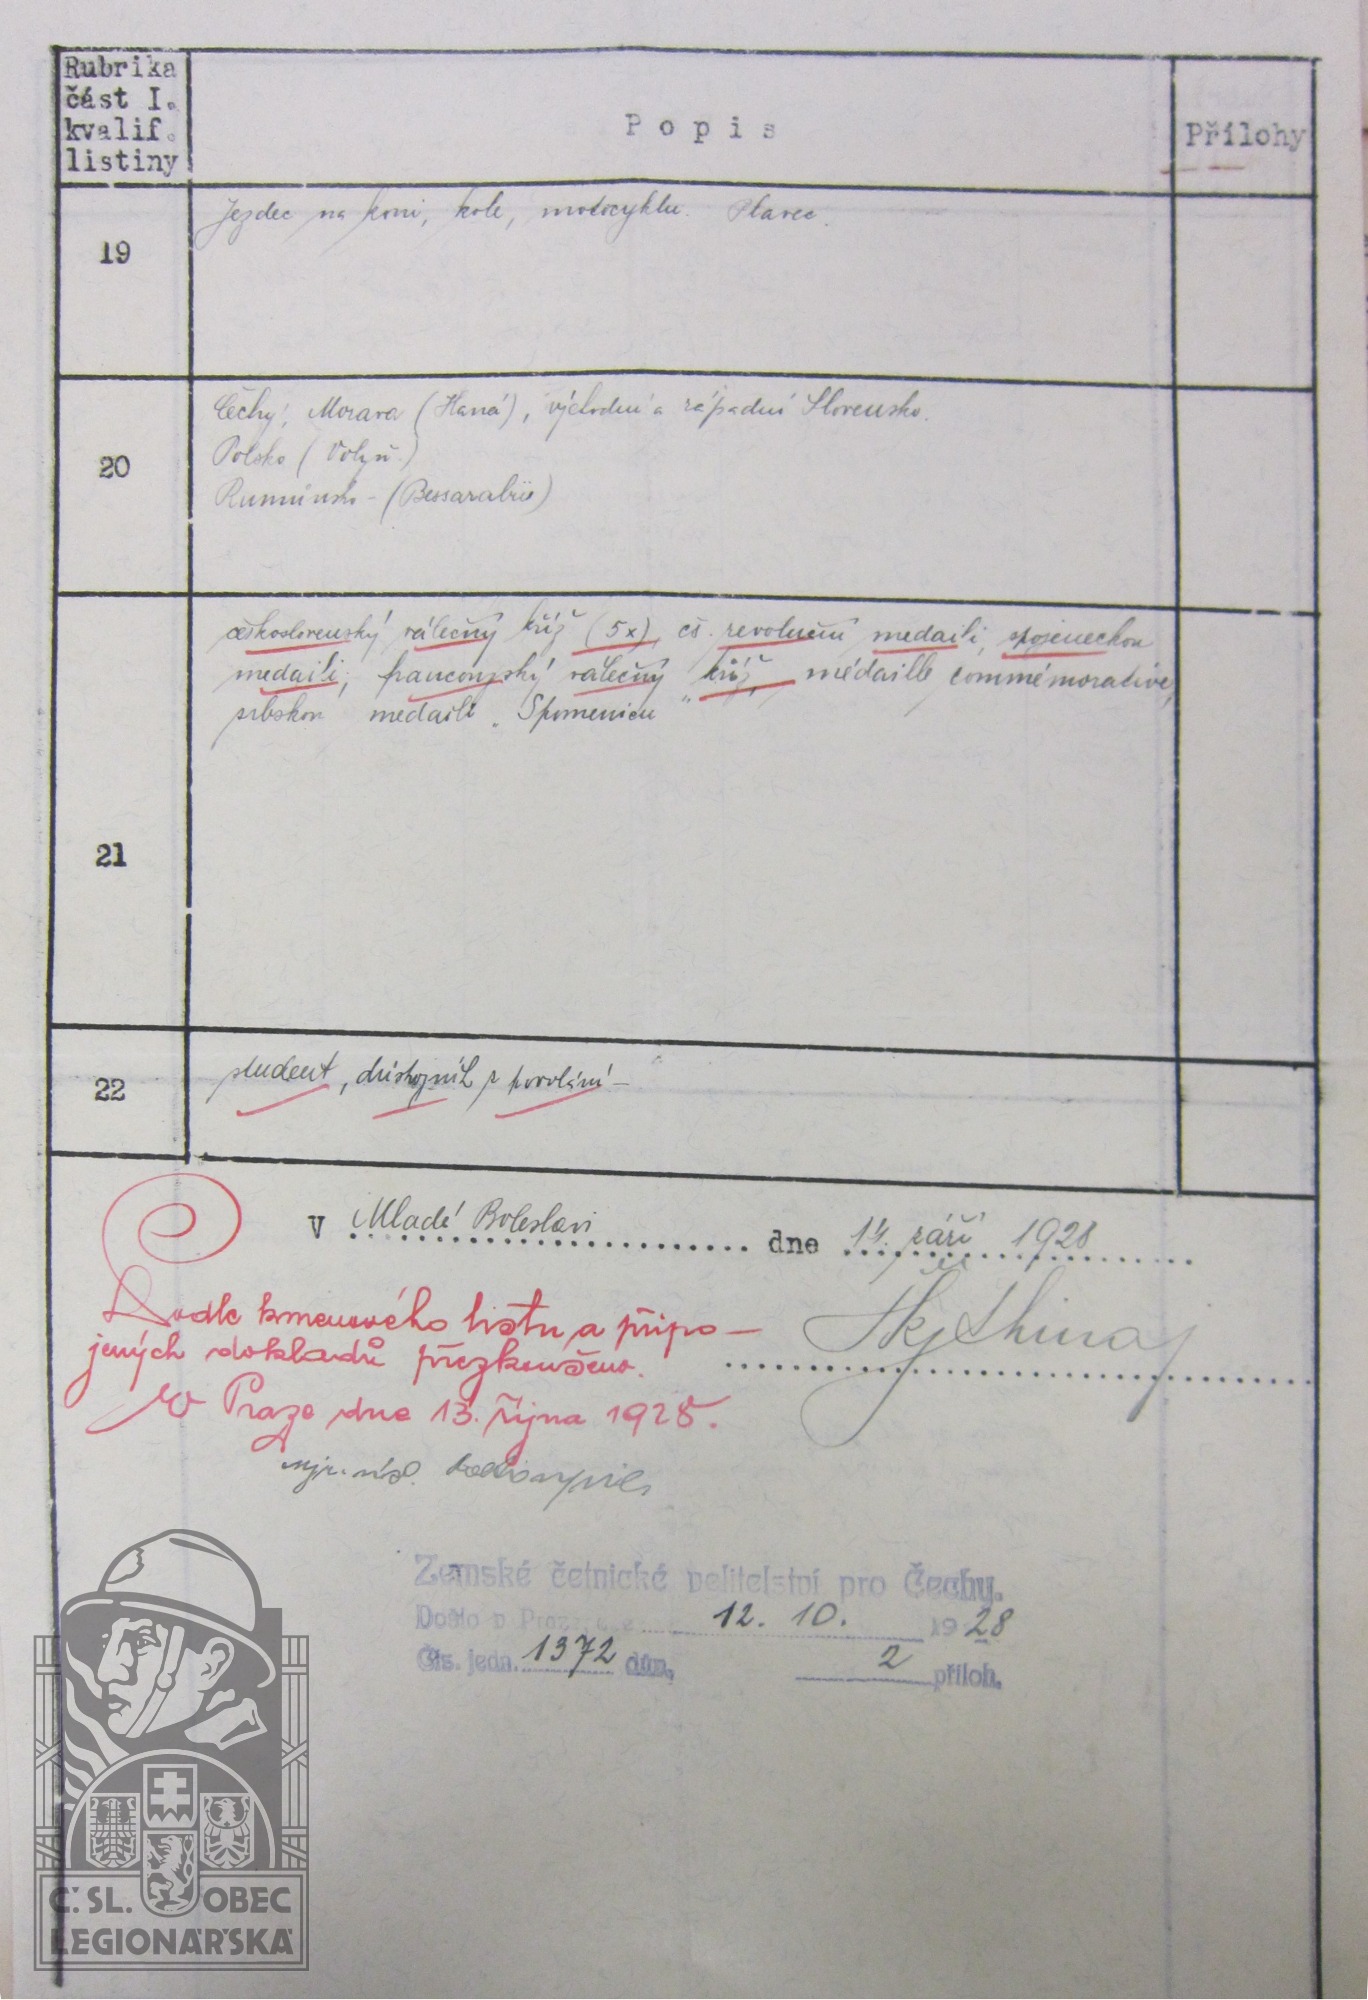 Rubrika
část I.
kvalif.
listiny
Popis
Přílohy
19
Jezdec na koni, kole, motocyklu. Plavec.
20
Čechy, Morava (Haná), východní a západní Slovensko.
Polsko (Volyň.)
Rumunsko - (Bessarabie)
21
československý válečný kříž (5x), čs. revoluční medaili, spojeneckou
medaili, francouzský válečný kříž, médaille commémorative,
srbskou medaili „Spomenicu"
22
student, důstojník z povolání –
V Mladé Boleslavi dne 14. září 1928
Podle kmenového listu a připo-
jených dokladů přezkoušeno.
V Praze dne 13. října 1928.
Zemské četnické velitelství pro Čechy.
Došlo v Praze dne 12. 10. 1928
Čís. jedn. 1372 dův. 2 příloh.
Č. SL. OBEC
LEGIONÁŘSKÁ